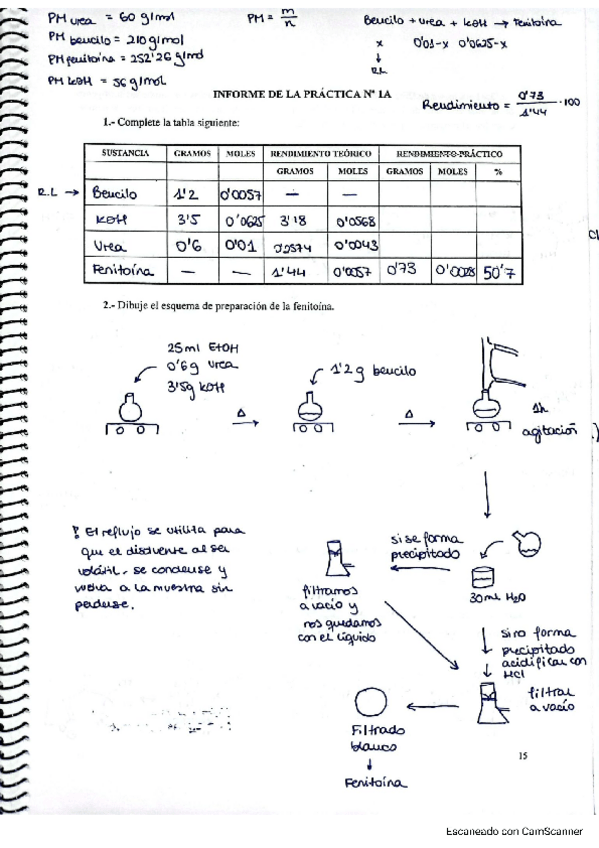 PM urea = 60 g/mol
PM bencilo = 210 g/mol
PM fenitoína = 252'26 g/mol
PM KOH = 56 g/mol
PM = m/n
Bencilo + urea + KOH → Fenitoína
x 0'01-x 0'0625-x
↓
R.L
INFORME DE LA PRÁCTICA Nº 1A
Rendimiento = 0'73/1'44 · 100
1.- Complete la tabla siguiente:
SUSTANCIA GRAMOS MOLES RENDIMIENTO TEÓRICO RENDIMIENTO PRÁCTICO
GRAMOS MOLES GRAMOS MOLES %
R.L → Bencilo 1'2 0'0057 — —
KOH 3'5 0'0625 3'18 0'0568
Urea 0'6 0'01 0'2574 0'0043
Fenitoína — — 1'44 0'0057 0'73 0'0028 50'7
2.- Dibuje el esquema de preparación de la fenitoína.
25ml EtOH
0'6g urea
3'5g KOH
Δ
1'2g bencilo
Δ
1h
agitación
! El reflujo se utiliza para
que el disolvente al ser
volátil, se condense y
vuelva a la muestra sin
perderse.
si se forma
precipitado
30mL H2O
filtramos
a vacío y
nos quedamos
con el líquido
si no forma
precipitado
acidificar con
HCl
filtrar
a vacío
Filtrado
blanco
↓
Fenitoína
15
Escaneado con CamScanner